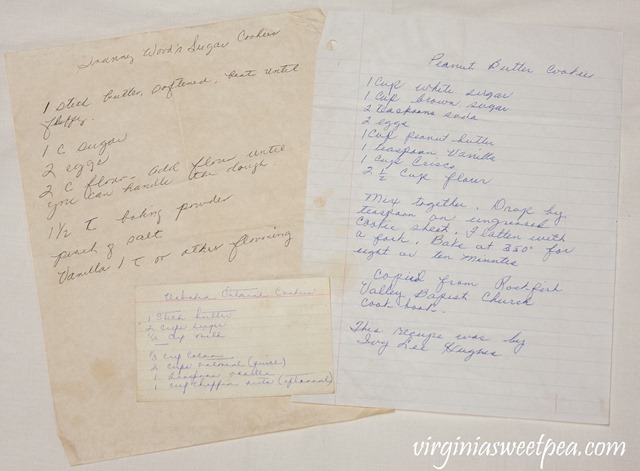 Granny Wood's Sugar Cookies
1 stick butter, softened, beat until
fluffy.
1 C sugar
2 eggs
2 C flour - add flour until
you can handle the dough.
1 1/2 T baking powder
pinch of salt
Vanilla 1 t or other flavoring
Peanut Butter Cookies
1 Cup white sugar
1 Cup brown sugar
2 teaspoons soda
2 eggs
1 Cup peanut butter
1 teaspoon Vanilla
1 Cup Crisco
2 1/2 Cup flour
Mix together. Drop by
teaspoon on ungreased
cookie sheet. Flatten with
a fork. Bake at 350° for
eight or ten minutes
Copied from Rockfish
Valley Baptist Church
cook-book.
This recipe was by
Ivy Lee Hughes
Oatmeal Cookies
1 stick butter
2 cups sugar
cup milk
1/3 cup cocoa
2 cups oatmeal (quick)
1 teaspoon vanilla
1 cup chopped nuts (optional)
virginiasweetpea.com